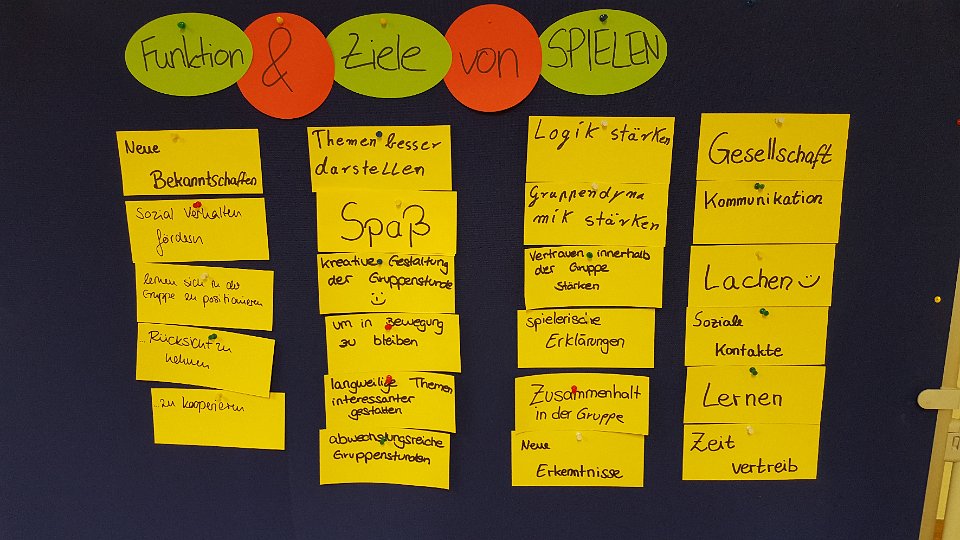 Funktion & Ziele von SPIELEN
Neue
Bekanntschaften
Sozial Verhalten
fördern
lernen sich in der
Gruppe zu positionieren
...Rücksicht zu
nehmen
...zu kooperieren
Themen besser
darstellen
Spaß
kreative Gestaltung
der Gruppenstunde
um in Bewegung
zu bleiben
langweilige Themen
interessanter
gestalten
abwechslungsreiche
Gruppenstunden
Logik stärken
Gruppendyna
mik stärken
Vertrauen innerhalb
der Gruppe
stärken
spielerische
Erklärungen
Zusammenhalt
in der Gruppe
Neue
Erkenntnisse
Gesellschaft
Kommunikation
Lachen
Soziale
Kontakte
Lernen
Zeit
vertreib